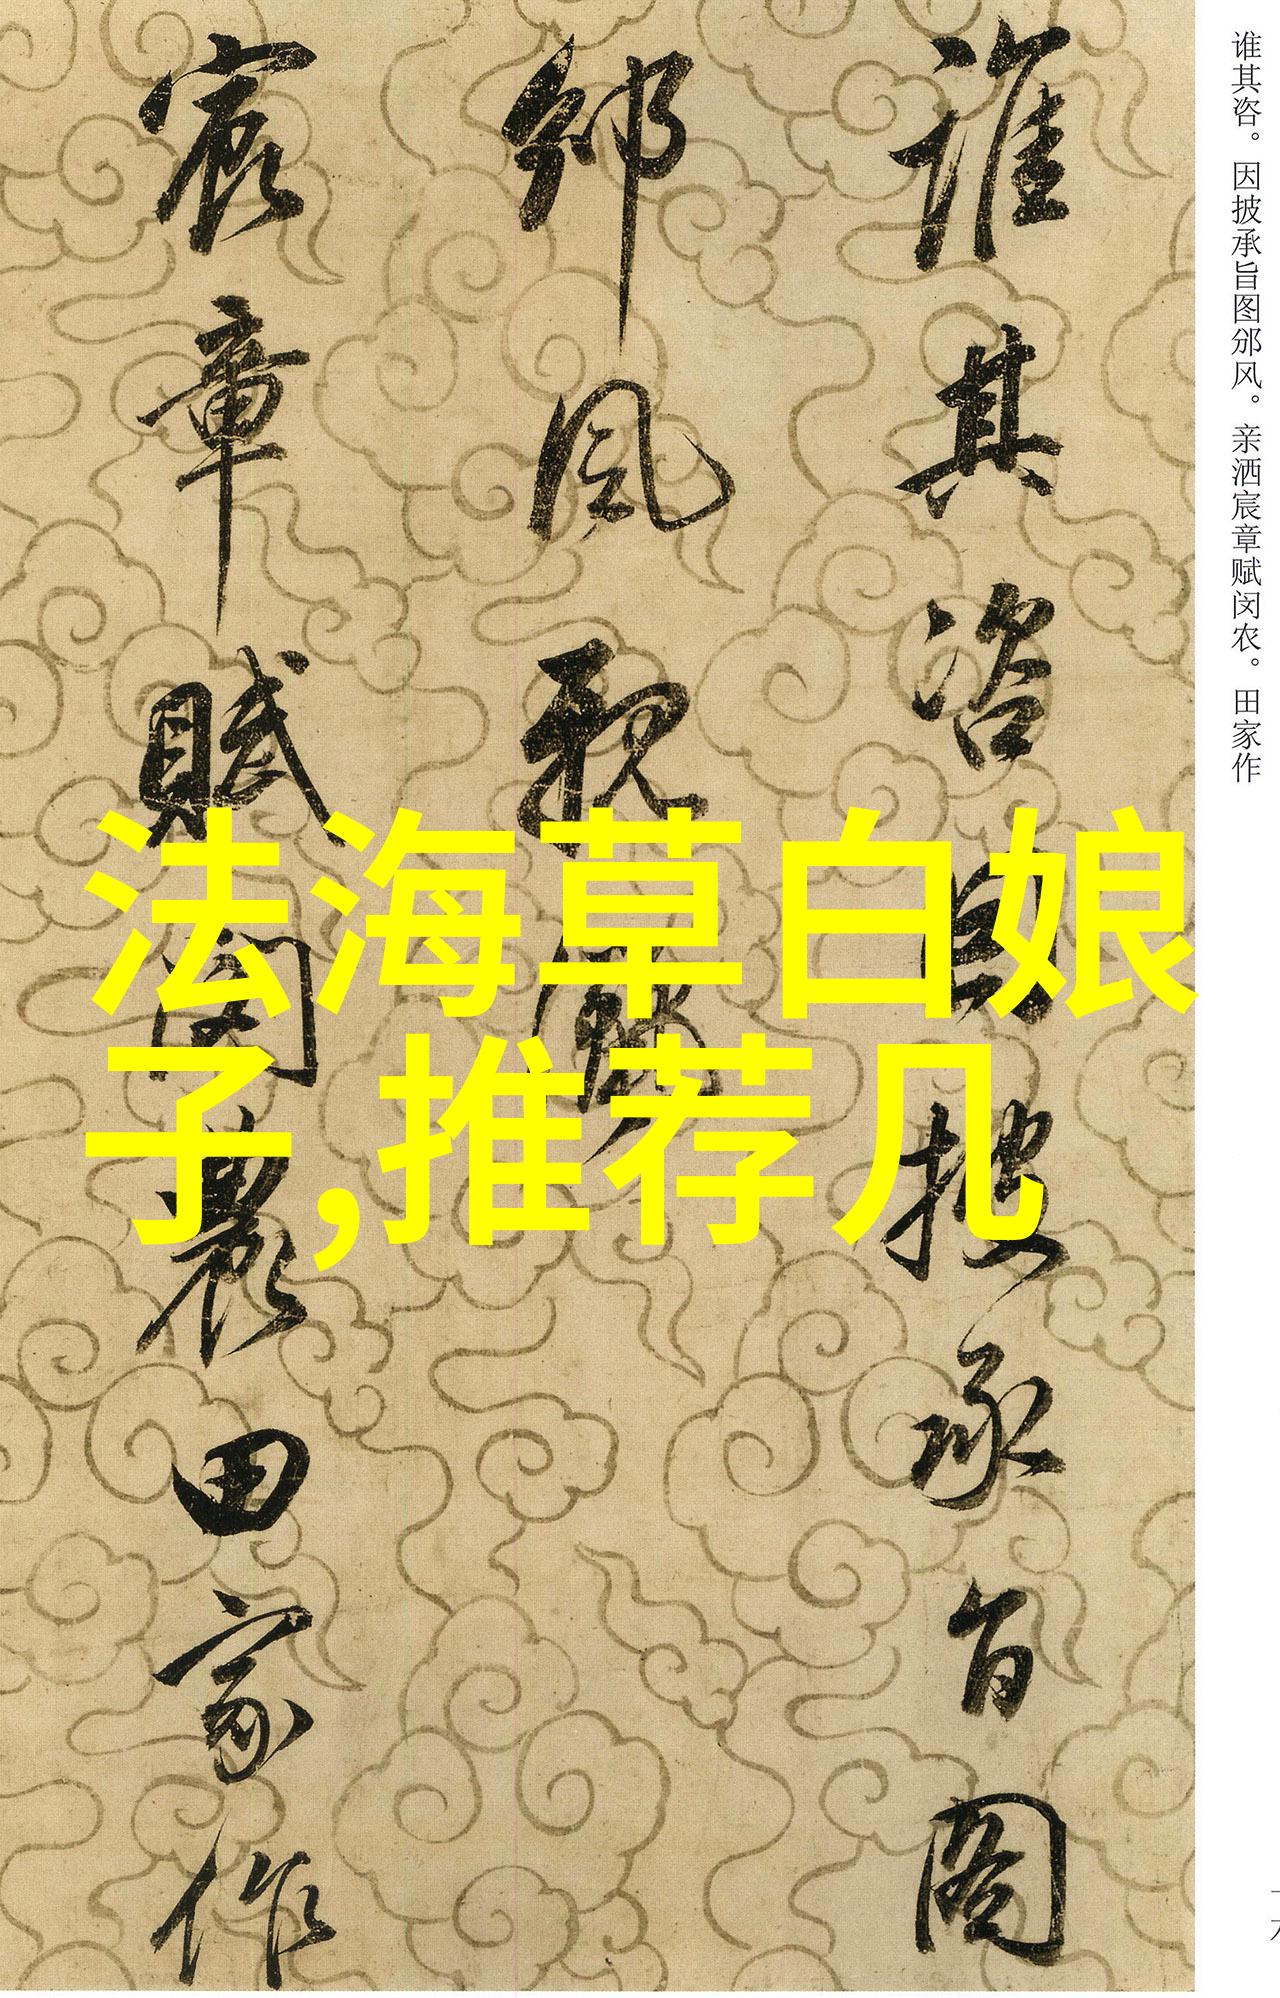 谁其咨。因披承旨图邠风。亲洒宸章赋闵农。田家作
誰其咨因披承旨圖
邠風親灑
宸章賦閔農田家作
法海草白娘
子,推荐几